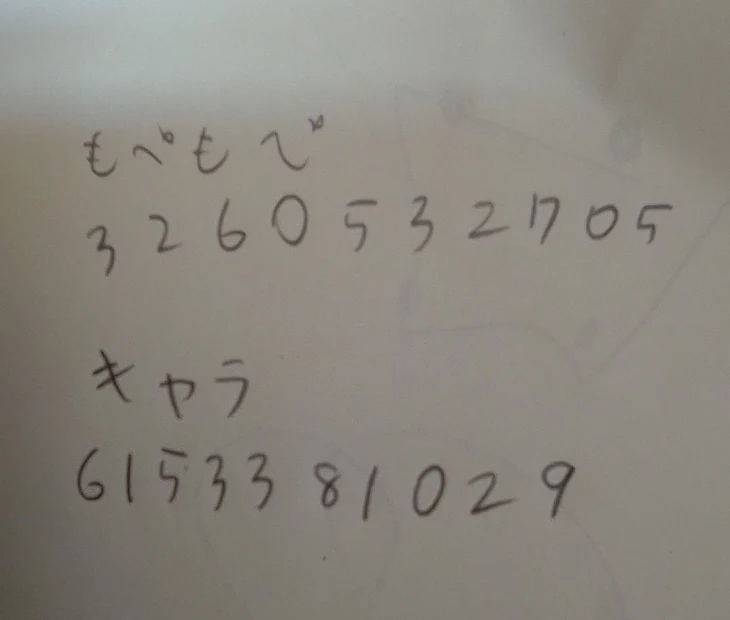 もぺもで
3260532705
キャラ
6153381029